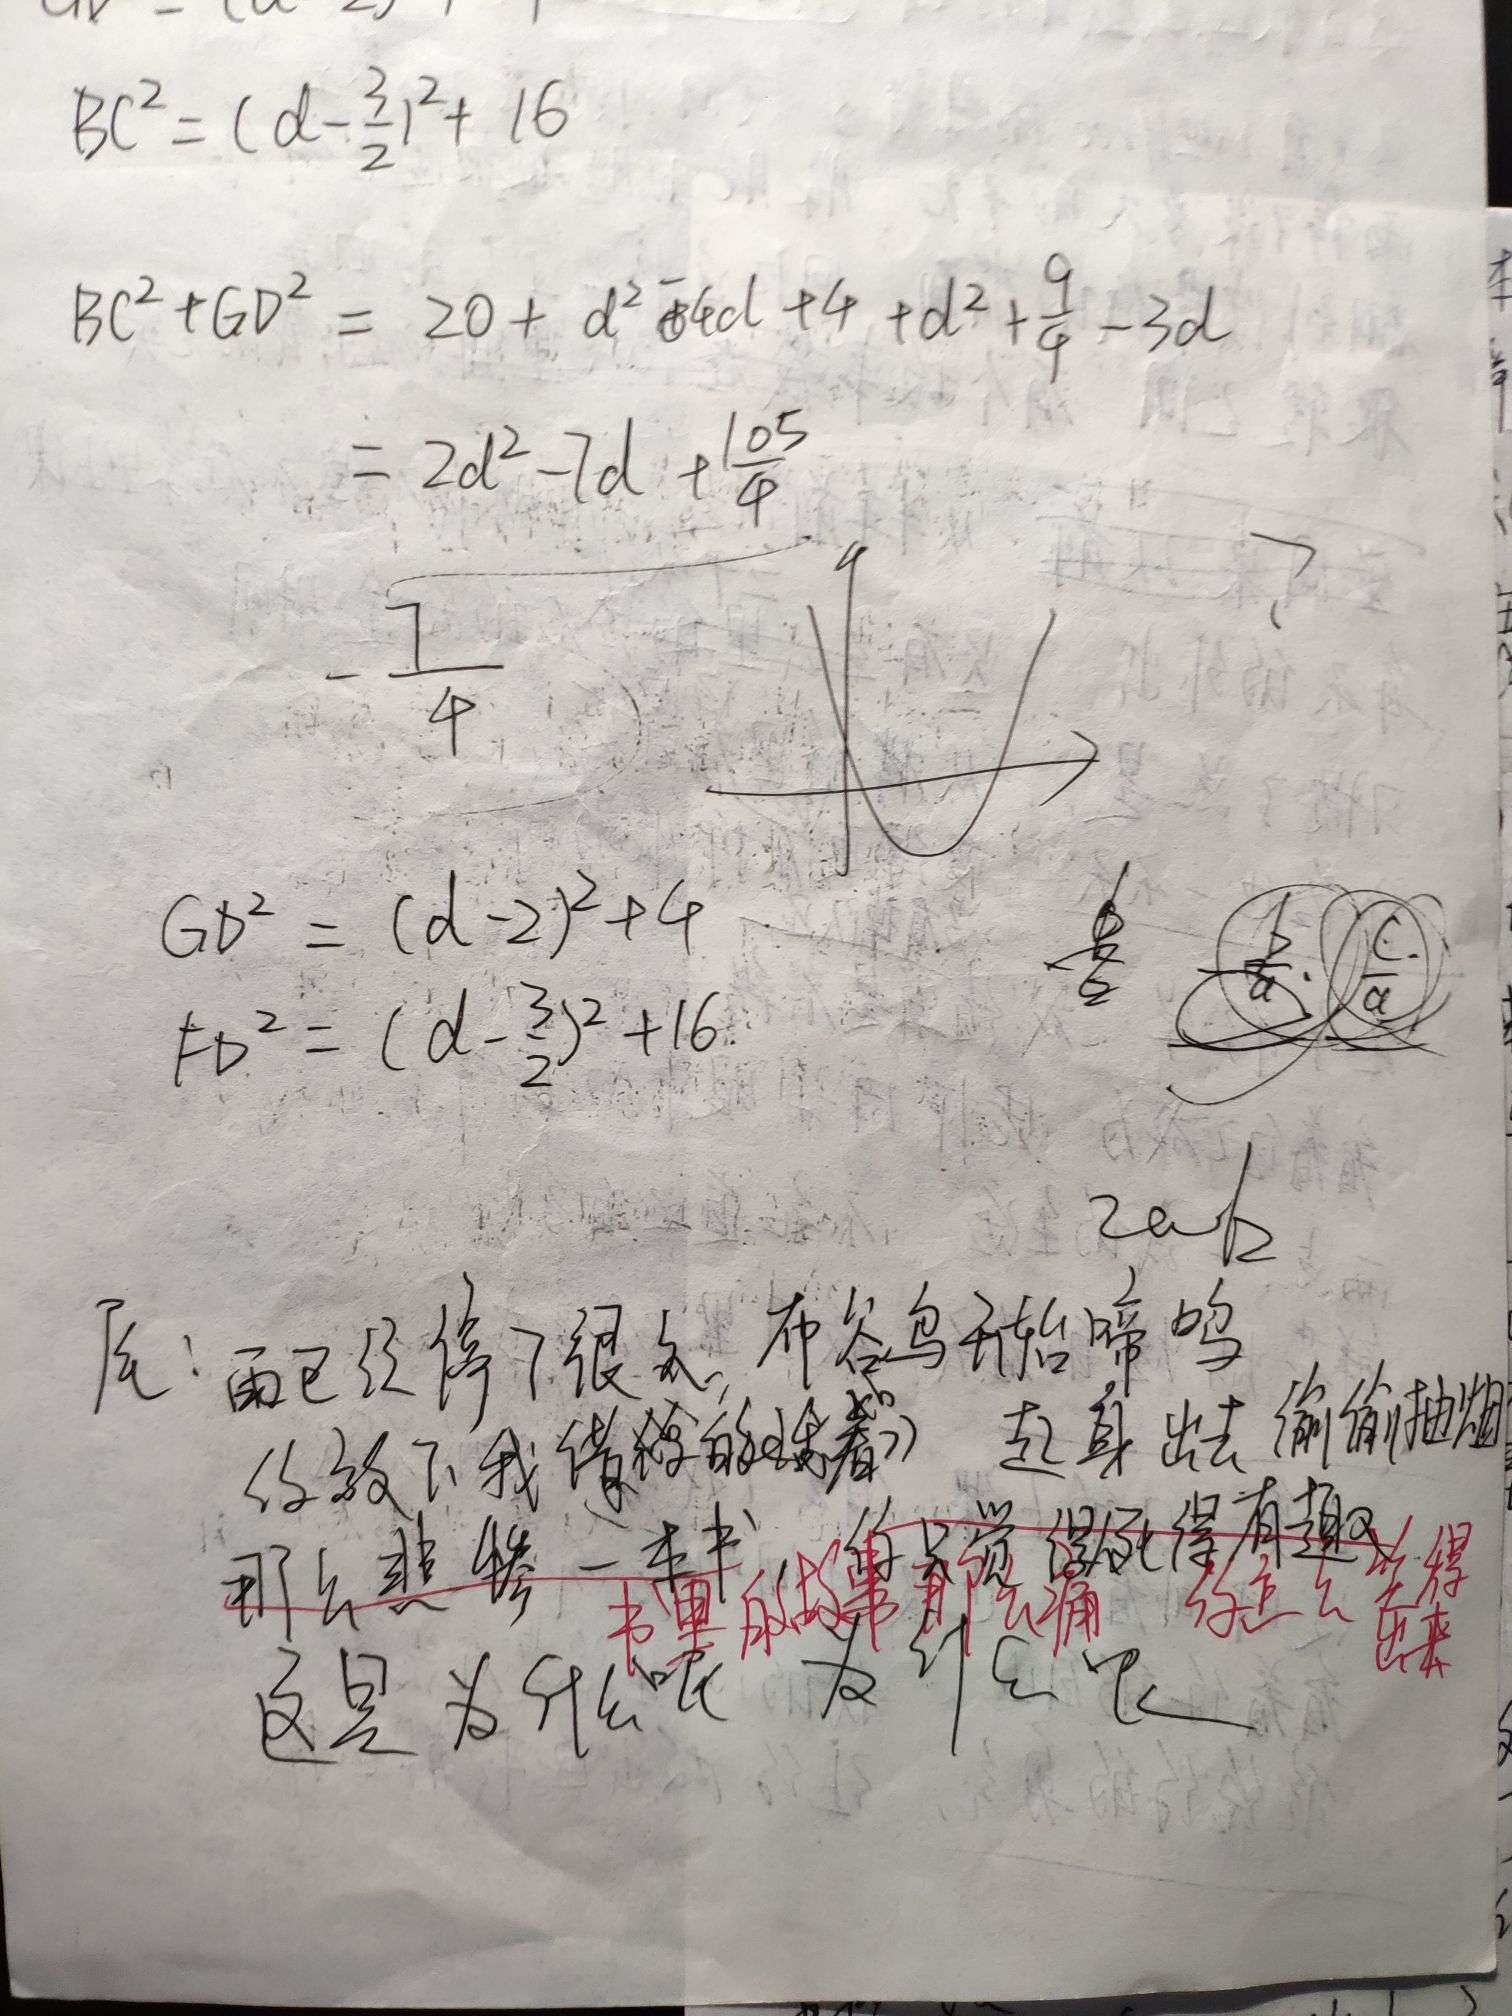 BC² = (d-3/2)² + 16
BC² + GD² = 20 + d² - 4d + 4 + d² + 9/4 - 3d
= 2d² - 7d + 105/4
- 7/4
GD² = (d-2)² + 4
FD² = (d-3/2)² + 16
b/a · c/a
2ab
尾: 雨已经停了很久, 布谷鸟开始啼鸣
你放下我借你的 起身出去偷偷抽烟
那么悲惨一本书 你只觉得死得有趣
书里的故事那么痛 你怎么笑得出来
这是为什么呢 为什么呢